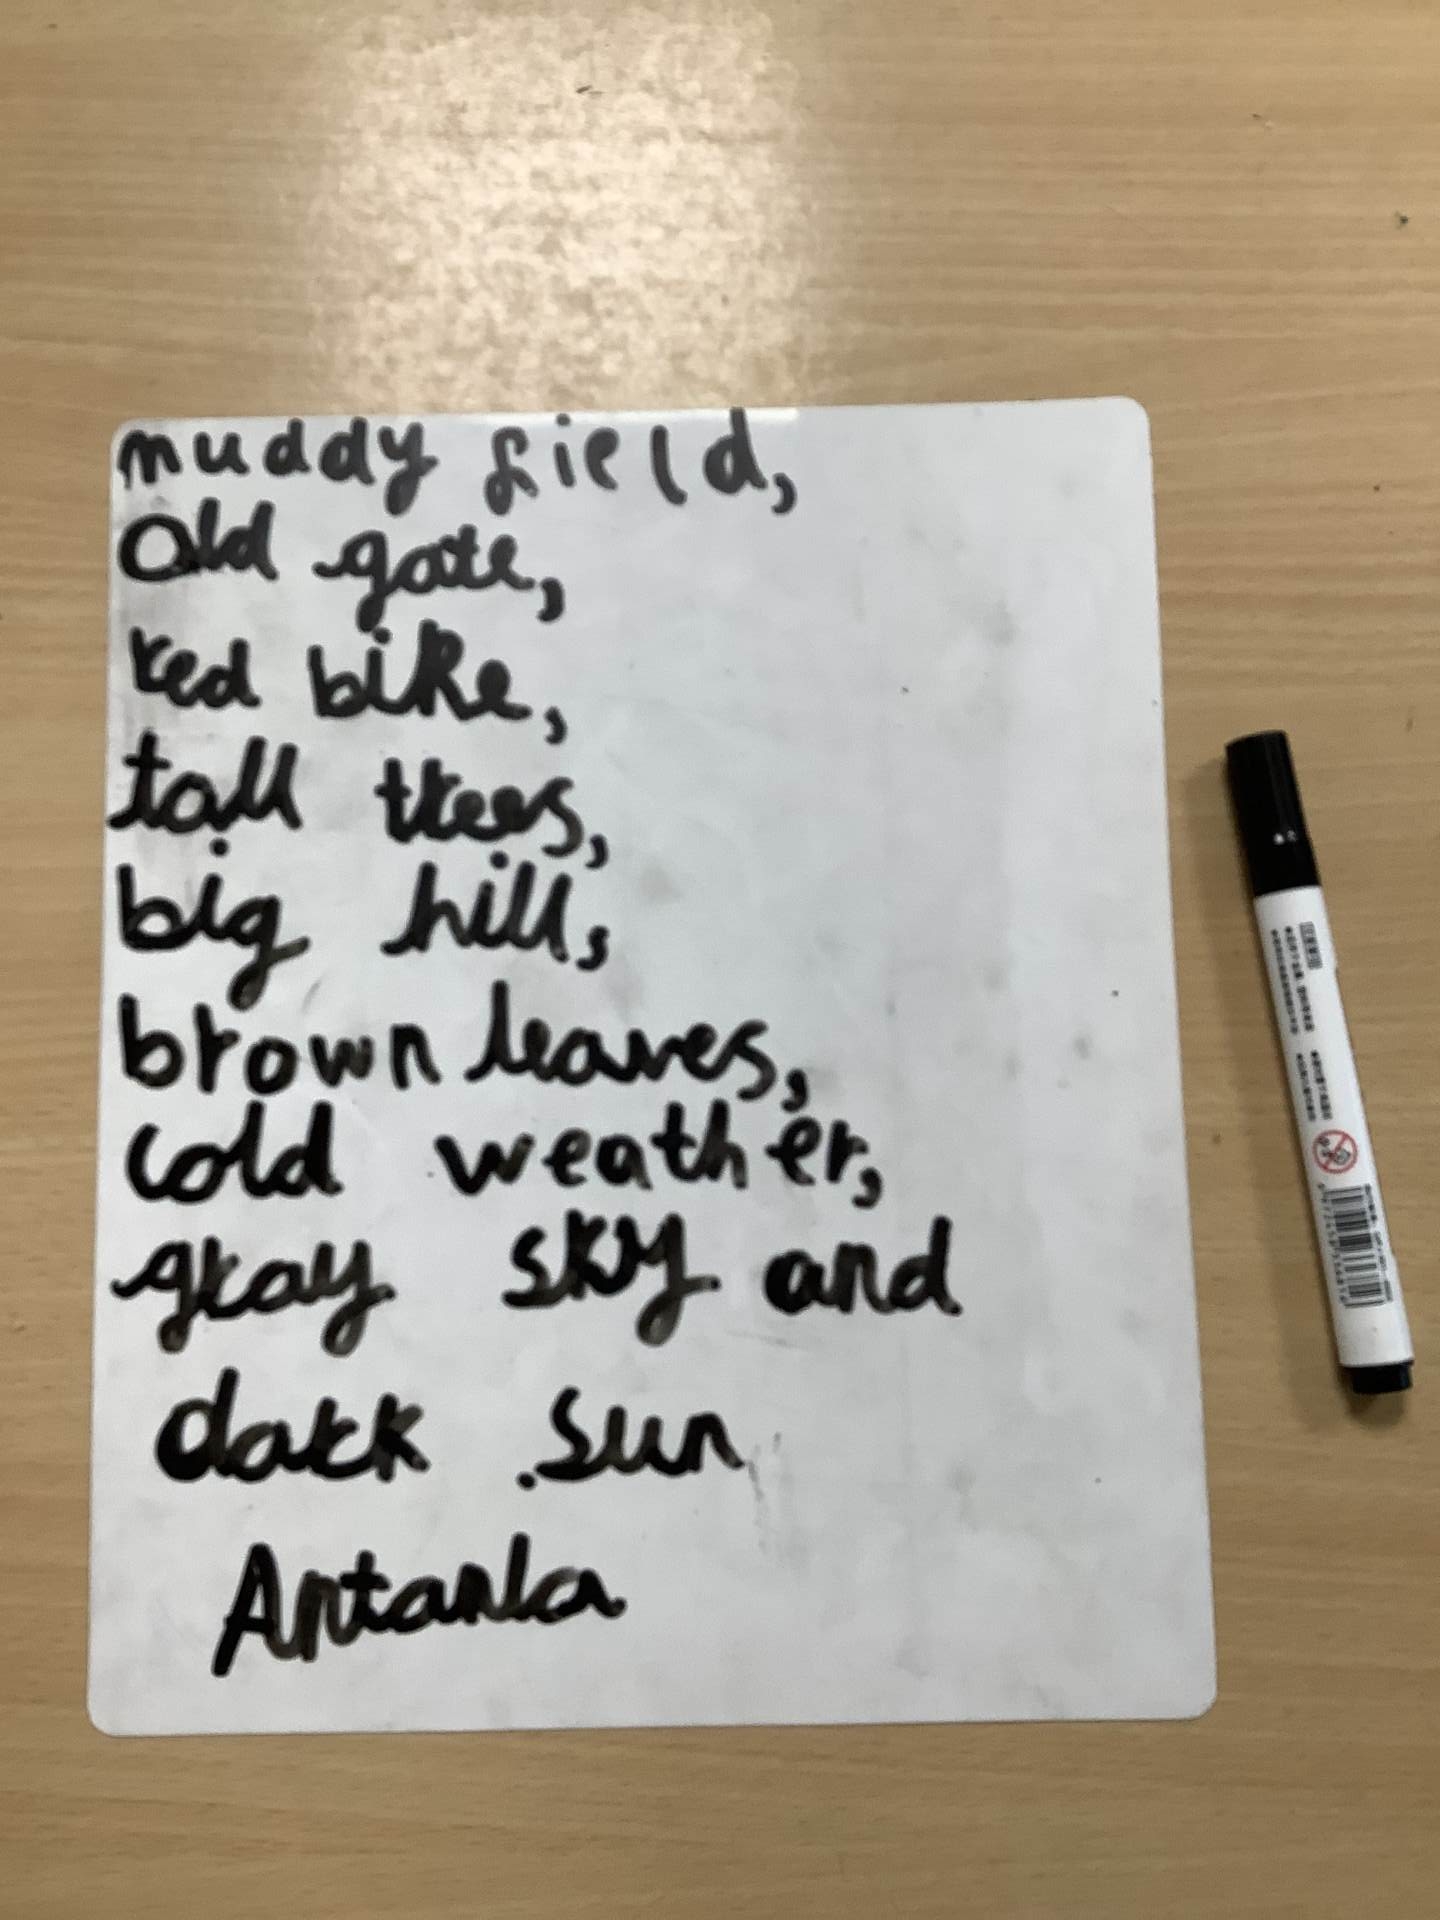 muddy field,
Old gate,
red bike,
tall trees,
big hill,
brown leaves,
cold weather,
gray sky and
dark sun
Antanla